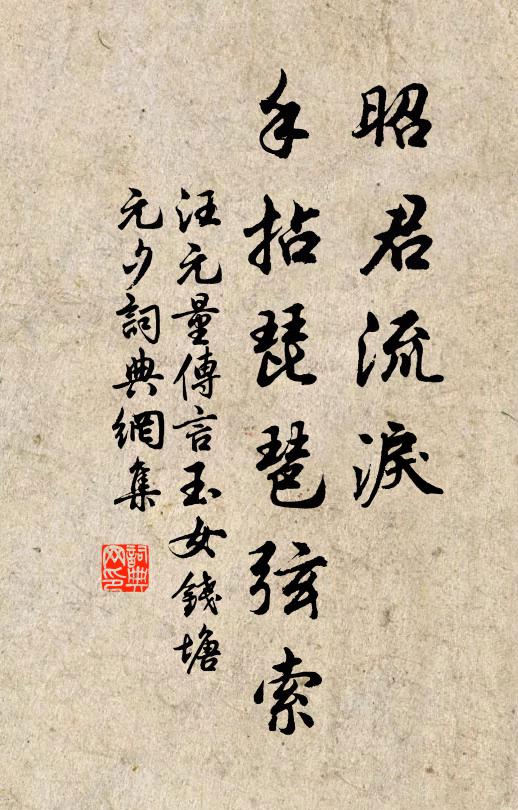 昭君流淚
手拈琵琶弦索
汪元量傳言玉女錢塘
元夕詞典網集
詞典
网印